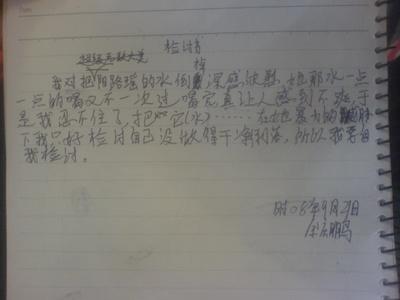 检讨书
我对把阳路瑶的水倒掉深感欣慰，她那水一点
一点的喝又不一次过喝完真让人感到不爽于
是我忍不住了，把它(水)……在她暴力的
下我只好检讨自己没做得干净利落，所以我要自
我检讨。
时08年9月29日